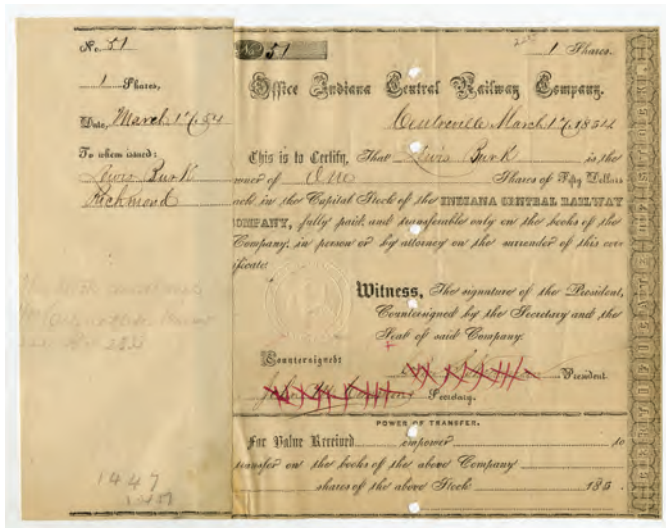 No. 51
1 Shares,
Date, March 17, 54
To whom issued:
Lewis Burk
Richmond
1447
No 51
1 Shares.
Office Indiana Central Railway Company.
Centreville March 17, 1854
This is to Certify, That Lewis Burk is the
owner of One Shares of Fifty Dollars
each in the Capital Stock of the INDIANA CENTRAL RAILWAY
COMPANY, fully paid, and transferable only on the books of the
Company, in person or by attorney on the surrender of this cer
tificate.
Witness, The signature of the President,
Countersigned by the Secretary and the
Seal of said Company.
Countersigned:
President.
Secretary.
POWER OF TRANSFER.
For Value Received empower to
transfer on the books of the above Company
shares of the above Stock 185 .